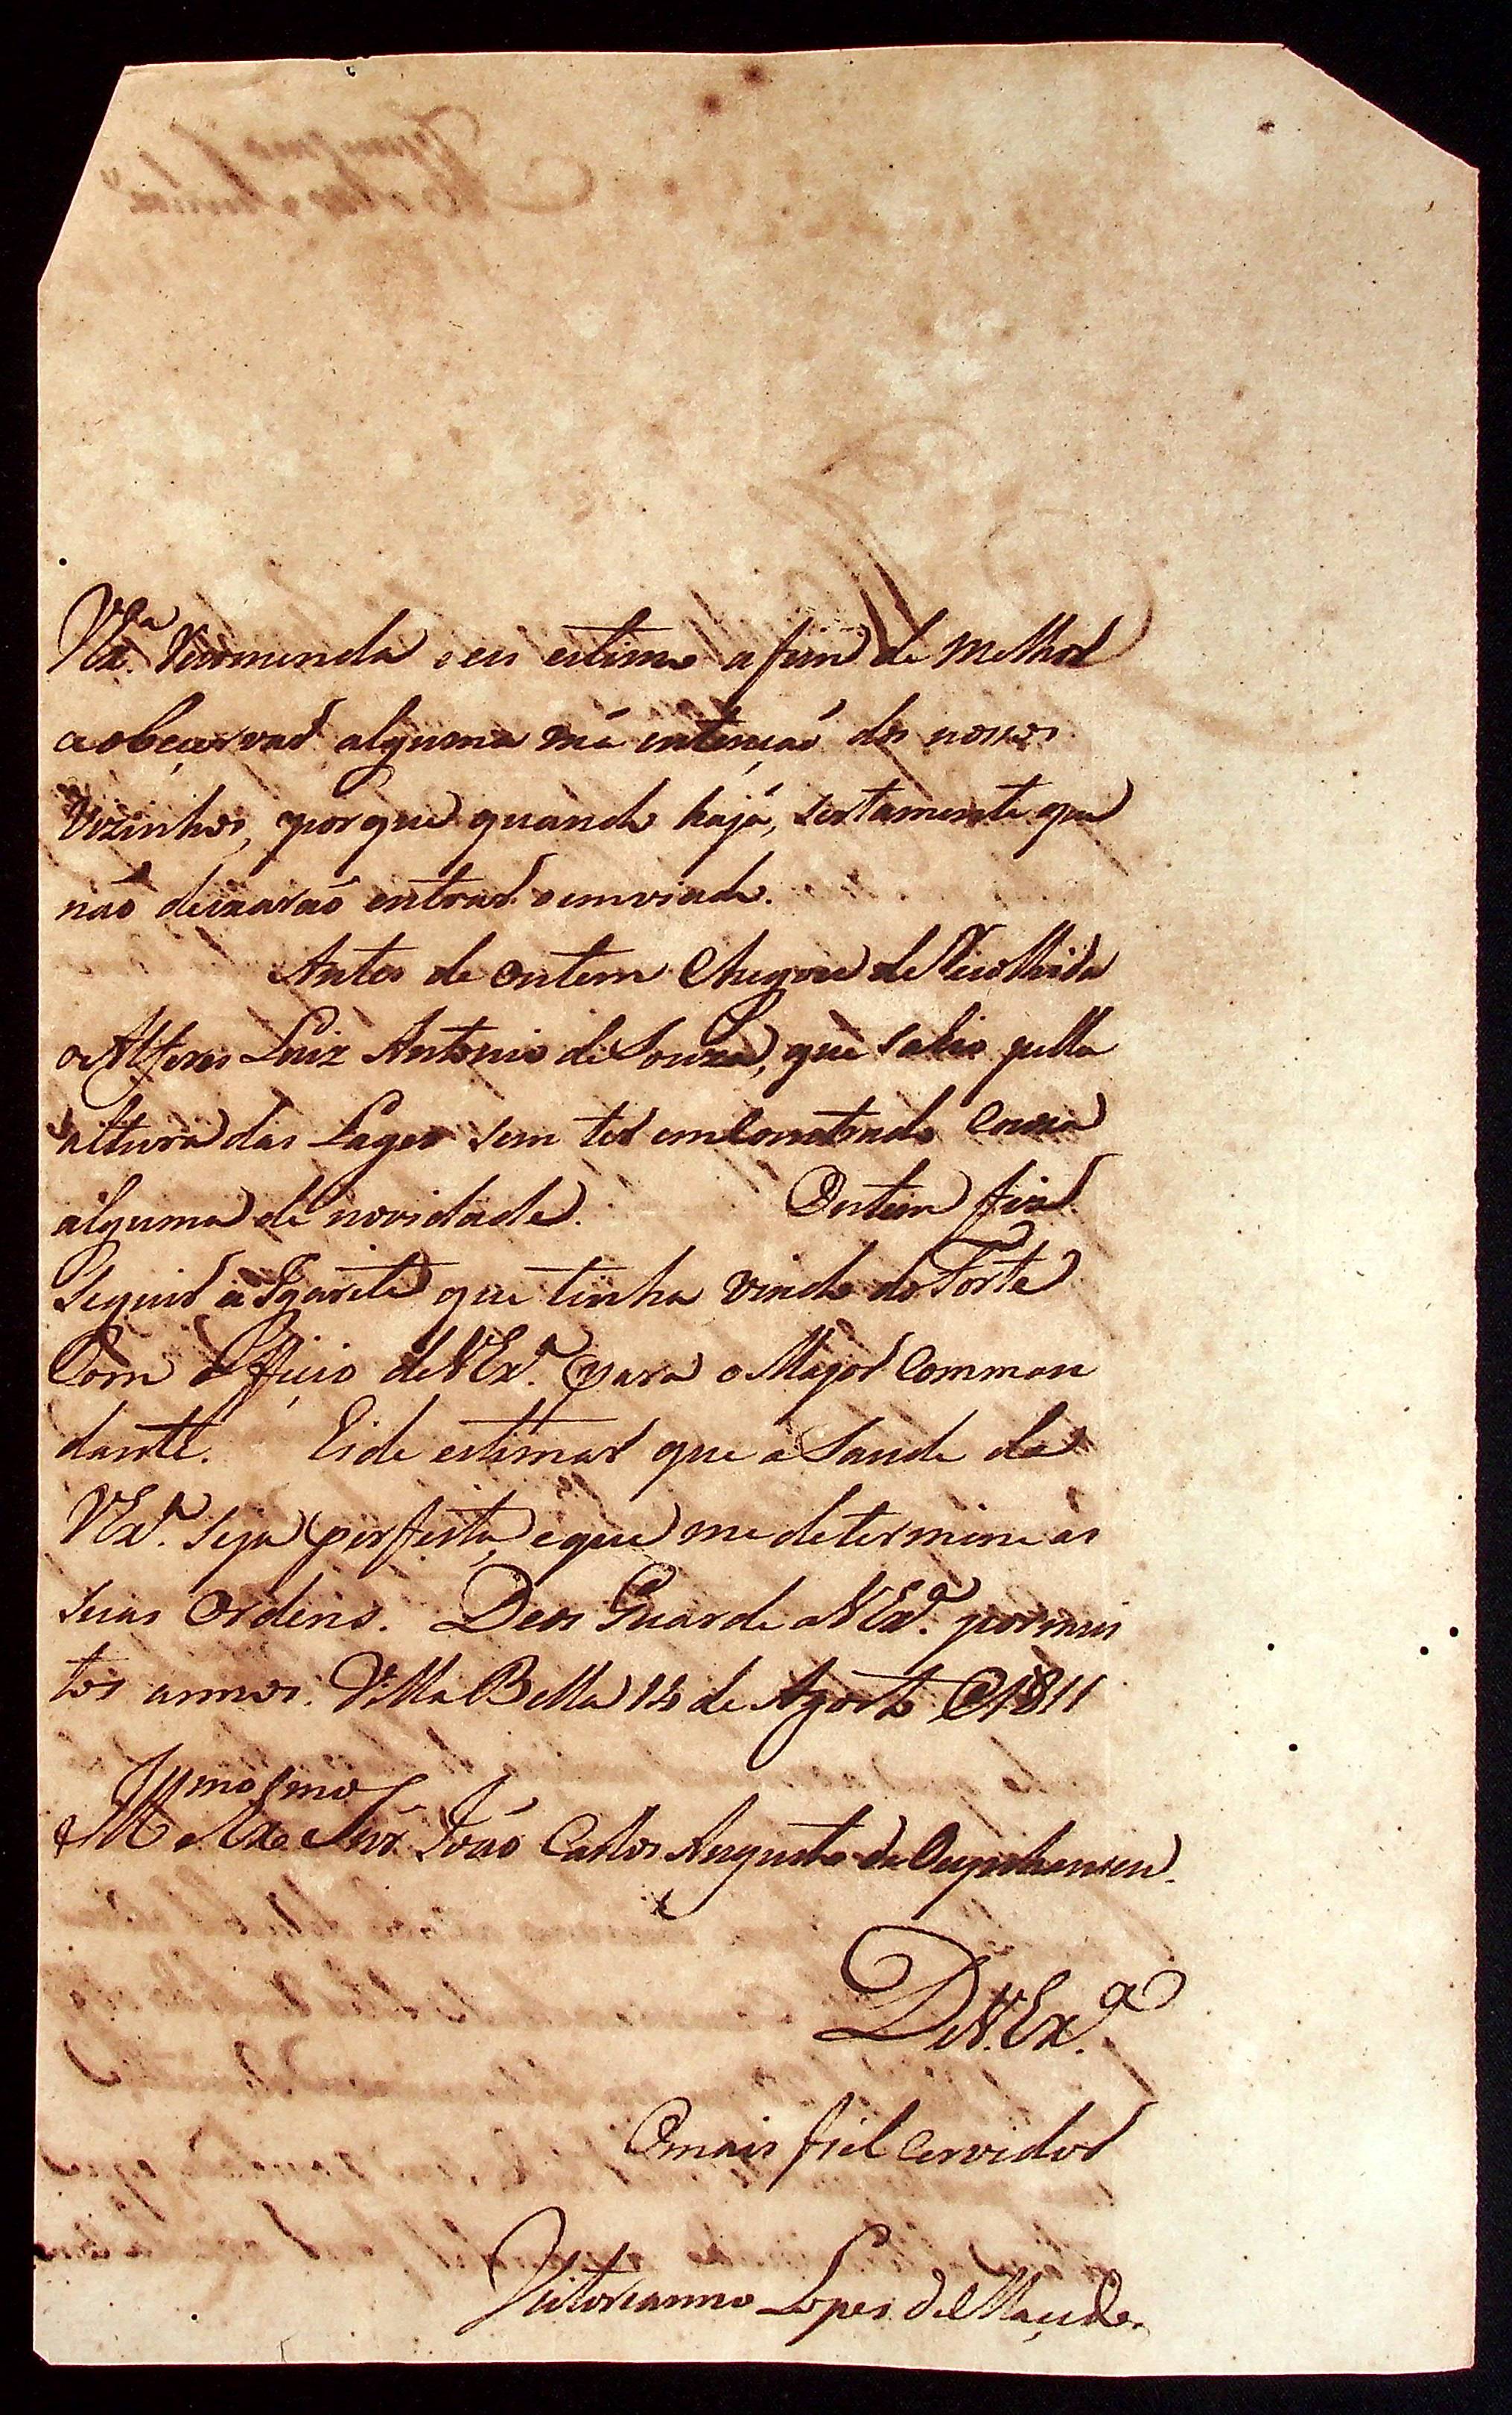 VEx.ª Recomenda e eu estimo afim de melhor
aobçarvar alguma má entenção dos nossos
Vizinhos, porque quando hajá, sertamente que
não deixarão entrar o emviado.
Antes de ontem Chegou de Recolhida
o Alferes Luiz Antonio de Souza, que sahio pella
altura das Lages sem ter emContrado Couza
alguma de novidade. Ontem fis
Seguir a Igarité que tinha vindo do Forte
Com Officio de VEx.ª para o Major Comman
dante. Eide estimar que a Saude de
VEx.ª seja perfeita, e que me determine as
suas Ordens. Deos Guarde a VEx.ª por mui
tos annos. Villa Bella 14 de Agosto @ 1811
Illmo e Exmo Snr. João Carlos Augusto de Oeynhausen.
De V.Ex.ª
O mais fiel Cervidor
Victorianno Lopes de Macedo.